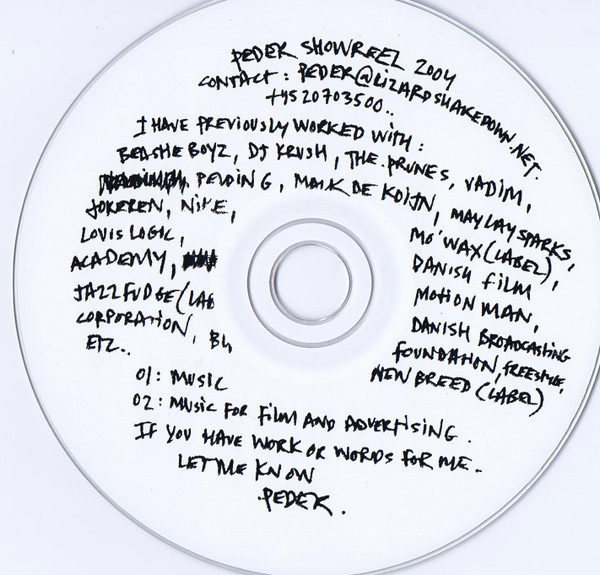 PEDER SHOWREEL 2004
CONTACT: PEDER@LIZARDSHAKEDOWN.NET
+4520703500..
I HAVE PREVIOUSLY WORKED WITH:
BEASTIE BOYZ, DJ KRUSH, THE PRUNES, VADIM,
PELDING, MARK DE KOIJN, MAYLAY SPARKS,
JOKEREN, NIKE, MO' WAX (LABEL),
LOUIS LOGIC, DANISH FILM
ACADEMY, MOTION MAN,
JAZZ FUDGE (LAB DANISH BROADCASTING
CORPORATION, FOUNDATION, FREESTYLE,
ETC.. NEW BREED (LABEL)
01: MUSIC
02: MUSIC FOR FILM AND ADVERTISING.
IF YOU HAVE WORK OR WORDS FOR ME..
LET ME KNOW
PEDER.